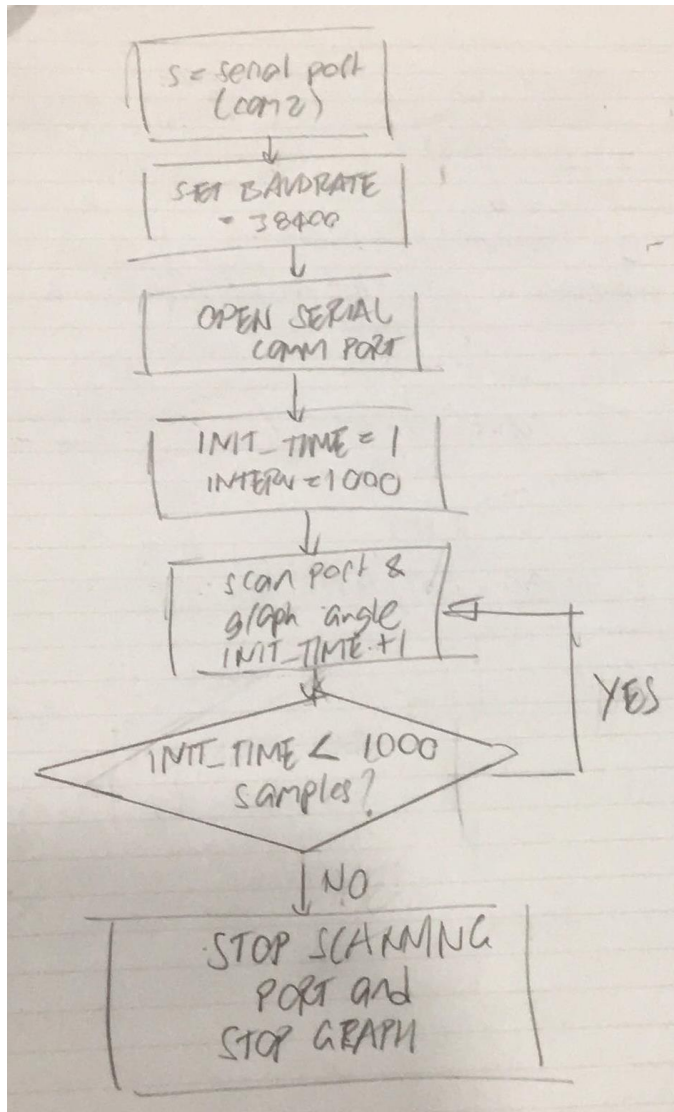 s = serial port
(com2)
SET BAUDRATE
= 38400
OPEN SERIAL
COMM PORT
INIT_TIME = 1
INTERV = 1000
scan port &
graph angle
INIT_TIME +1
INIT_TIME < 1000
samples?
YES
NO
STOP SCANNING
PORT and
STOP GRAPH